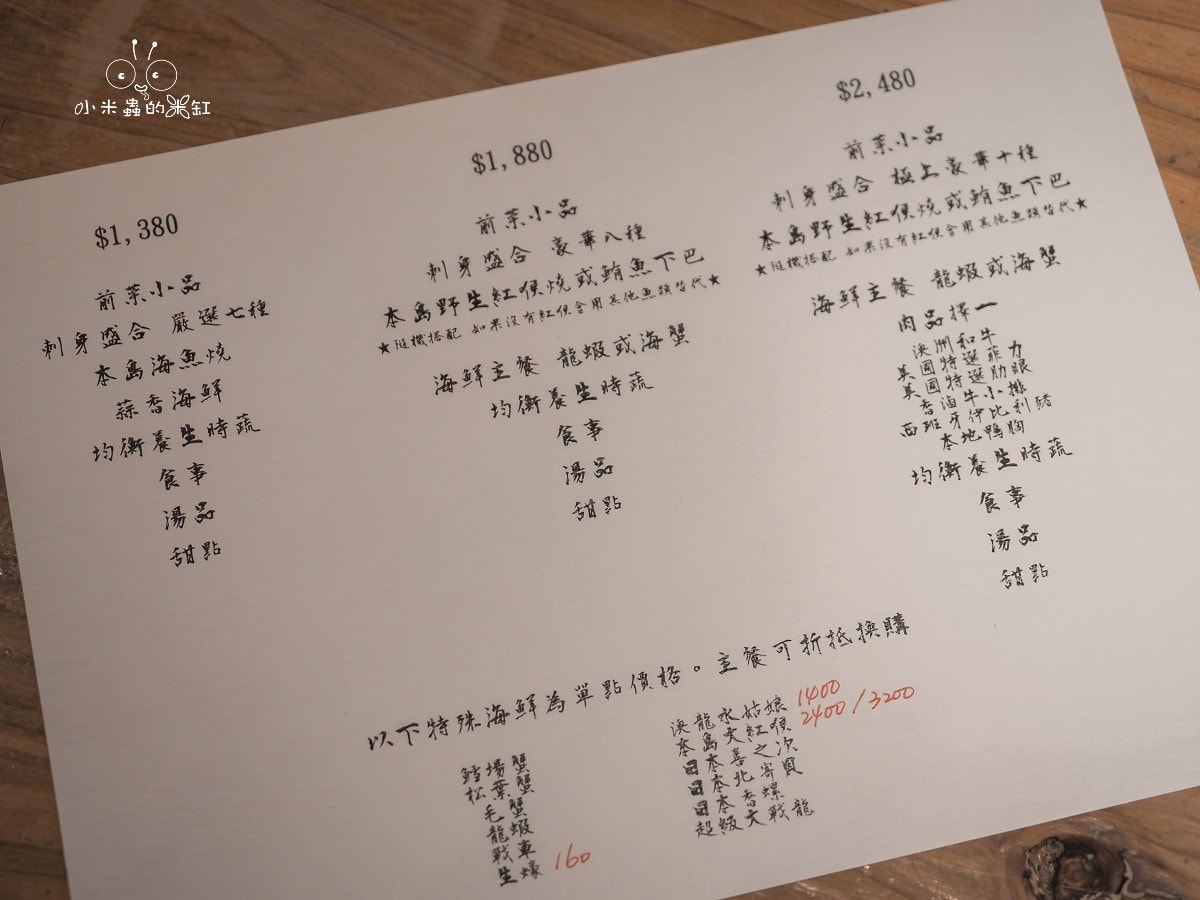 小米蟲的米缸
$1,380
前菜小品
刺身盛合 嚴選七種
本島海魚燒
蒜香海鮮
均衡養生時蔬
食事
湯品
甜點
$1,880
前菜小品
刺身盛合 豪華八種
本島野生紅喉燒或鮪魚下巴
★隨機搭配 如果沒有紅喉會用其他魚類替代★
海鮮主餐 龍蝦或海蟹
均衡養生時蔬
食事
湯品
甜點
$2,480
前菜小品
刺身盛合 極上豪華十種
本島野生紅喉燒或鮪魚下巴
★隨機搭配 如果沒有紅喉會用其他魚類替代★
海鮮主餐 龍蝦或海蟹
肉品擇一
澳洲和牛
美國特選菲力
美國特選肋眼
香滷牛小排
西班牙伊比利豬
本地鴨胸
均衡養生時蔬
食事
湯品
甜點
以下特殊海鮮為單點價格。主餐可折抵換購
鱈場蟹
松葉蟹
毛蟹
龍蝦
戰車
生蠔 160
澳龍水姑娘 1400
本島大紅喉 2400/3200
日本喜之次
日本北寄貝
日本香螺
超級大戰龍